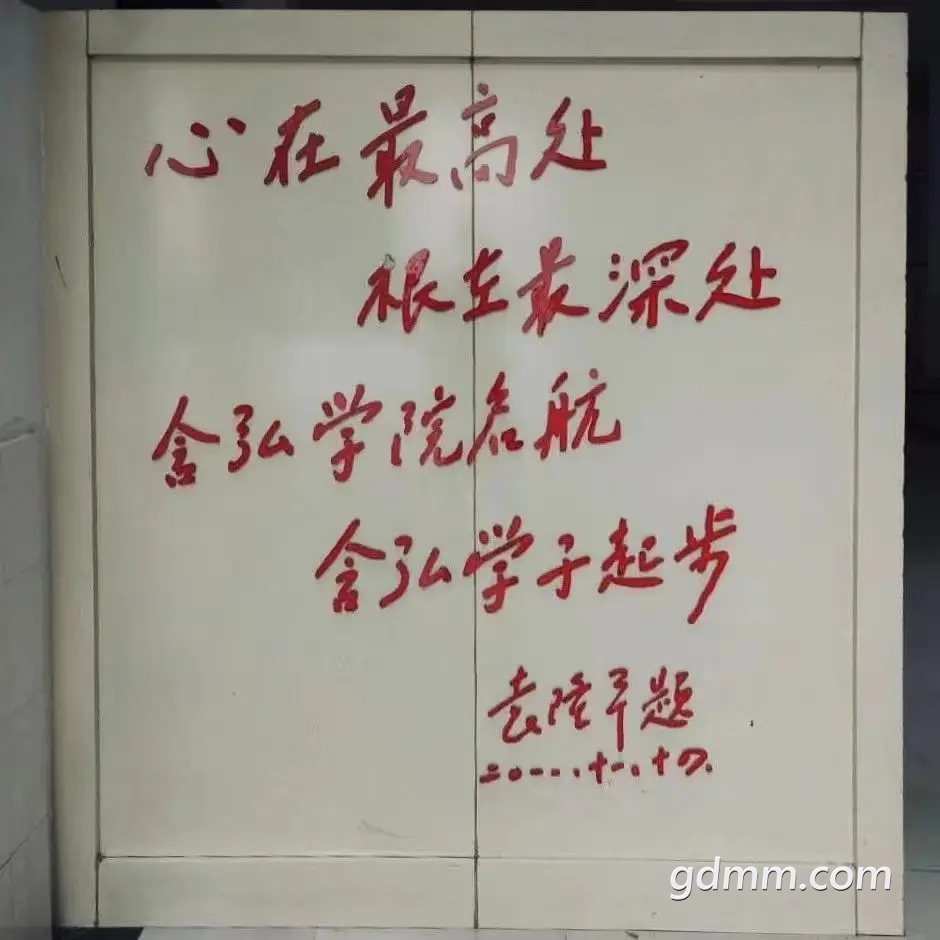 心在最高处
根在最深处
含弘学院启航
含弘学子起步
袁隆平题
二〇一一.十一.十四.
gdmm.com